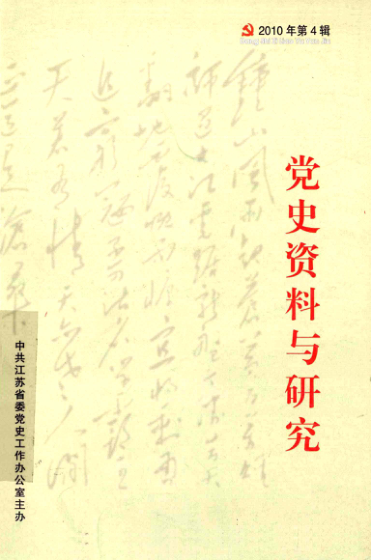 2010年第4辑
党史资料与研究
鐘山風雨起蒼黄百万雄
師过大江虎踞龍盤今勝昔天
翻地覆慨而慷宜將剩勇
追窮寇不可沽名學霸王
天若有情天亦老人間
正道是滄桑
中共江苏省委党史工作办公室主办